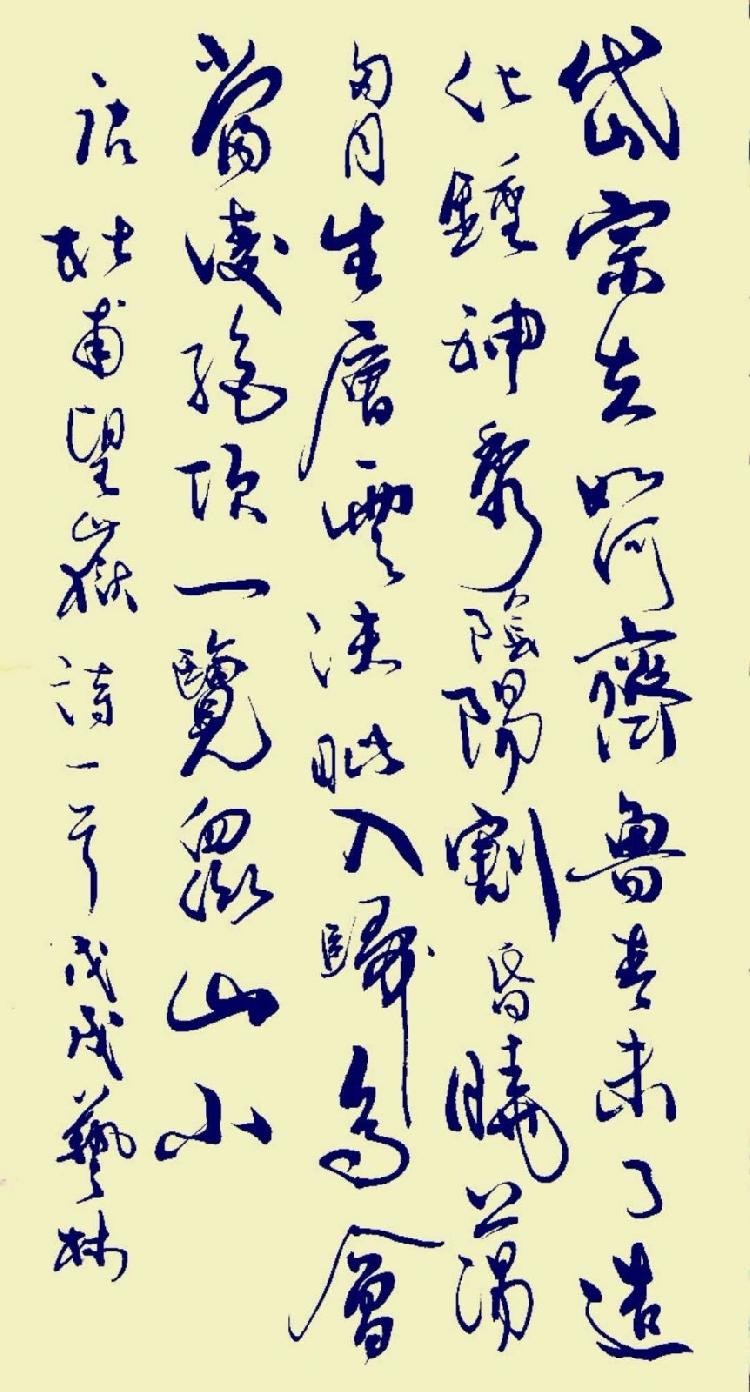 岱宗夫如何齊魯青未了造
化鍾神秀陰陽割昏曉蕩
胷生層雲決眦入歸鳥會
當凌絕頂一覽眾山小
唐杜甫望嶽詩一首戊戌藝林